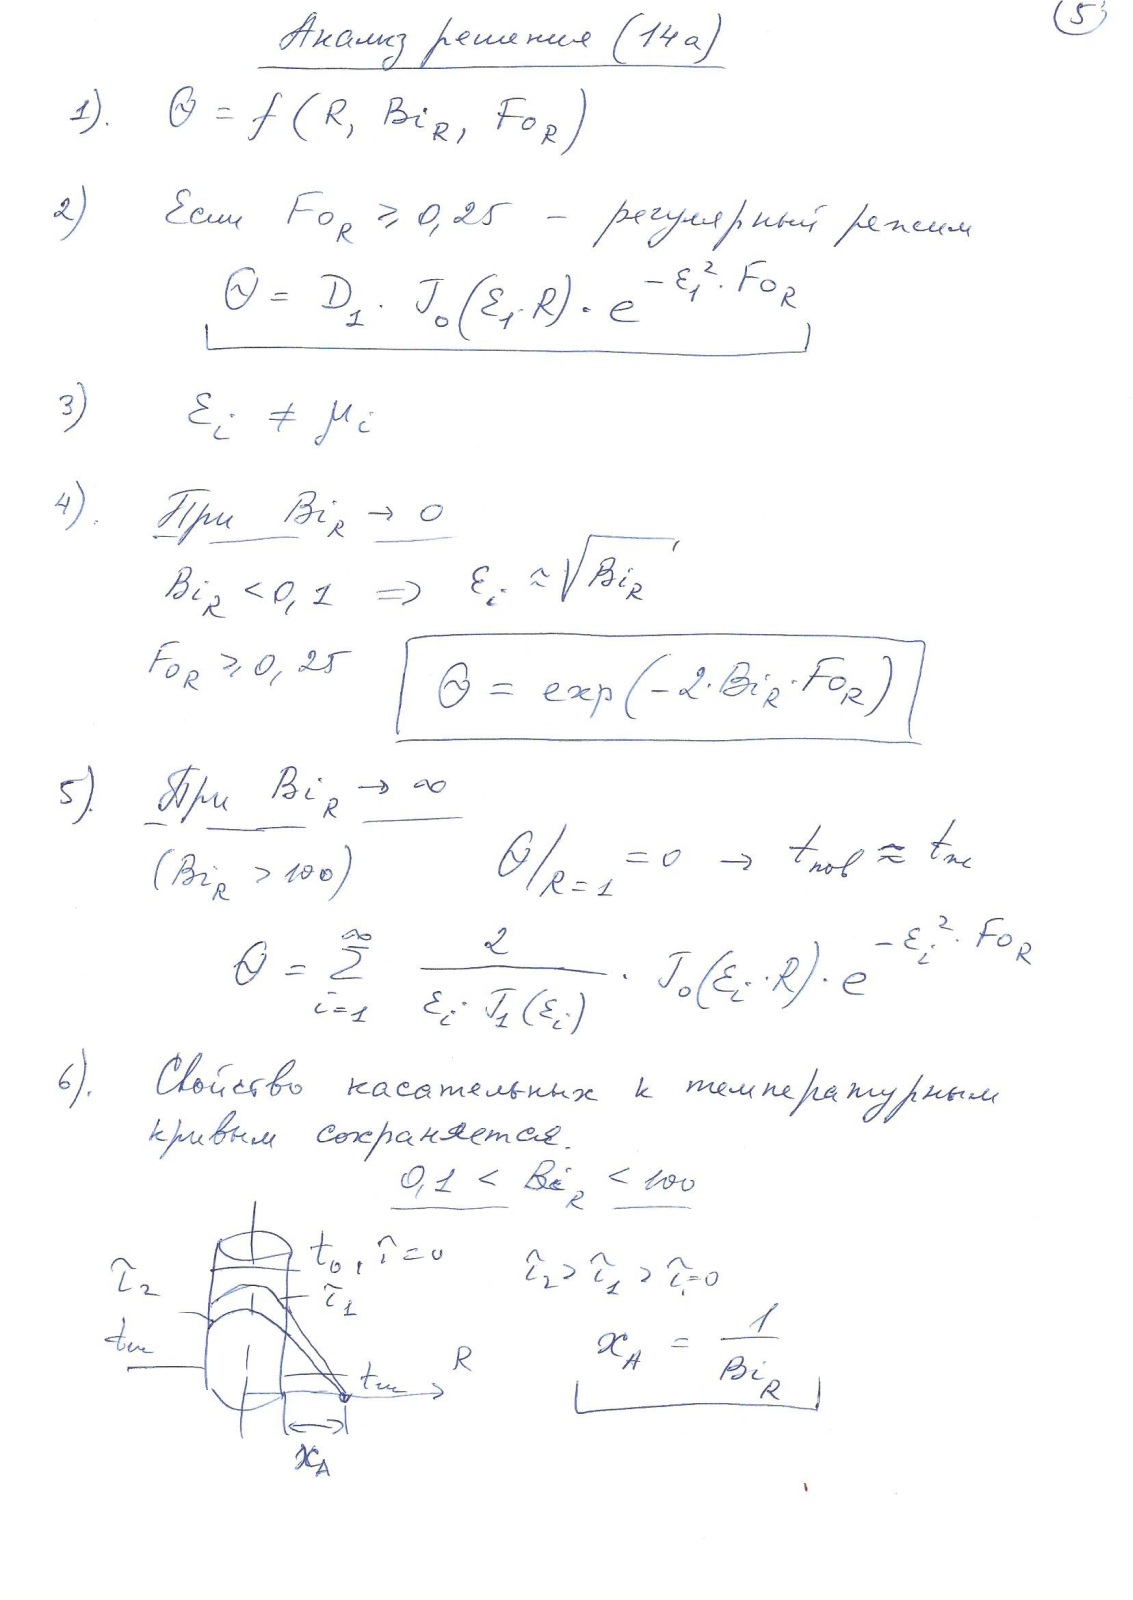 (5)
Анализ решения (14а)
1). Θ = f (R, Bi_R, Fo_R)
2) Если Fo_R ⩾ 0,25 – регулярный режим
Θ = D_1 · J_0(ε_1·R) · e^{-ε_1^2·Fo_R}
3) ε_i ≠ μ_i
4). При Bi_R → 0
Bi_R < 0,1 ⇒ ε_i ≈ √Bi_R
Fo_R ⩾ 0,25
Θ = exp(-2·Bi_R·Fo_R)
5). При Bi_R → ∞
(Bi_R > 100) Θ/_{R=1} = 0 → t_пов ≈ t_ж
Θ = Σ_{i=1}^{∞} 2/(ε_i · J_1(ε_i)) · J_0(ε_i·R) · e^{-ε_i^2·Fo_R}
6). Свойство касательных к температурным
кривым сохраняется.
0,1 < Bi_R < 100
t_0, τ=0
τ_2 > τ_1 > τ=0
τ_2
τ_1
t_ж
x_A = 1/Bi_R
R
t_ж
x_A